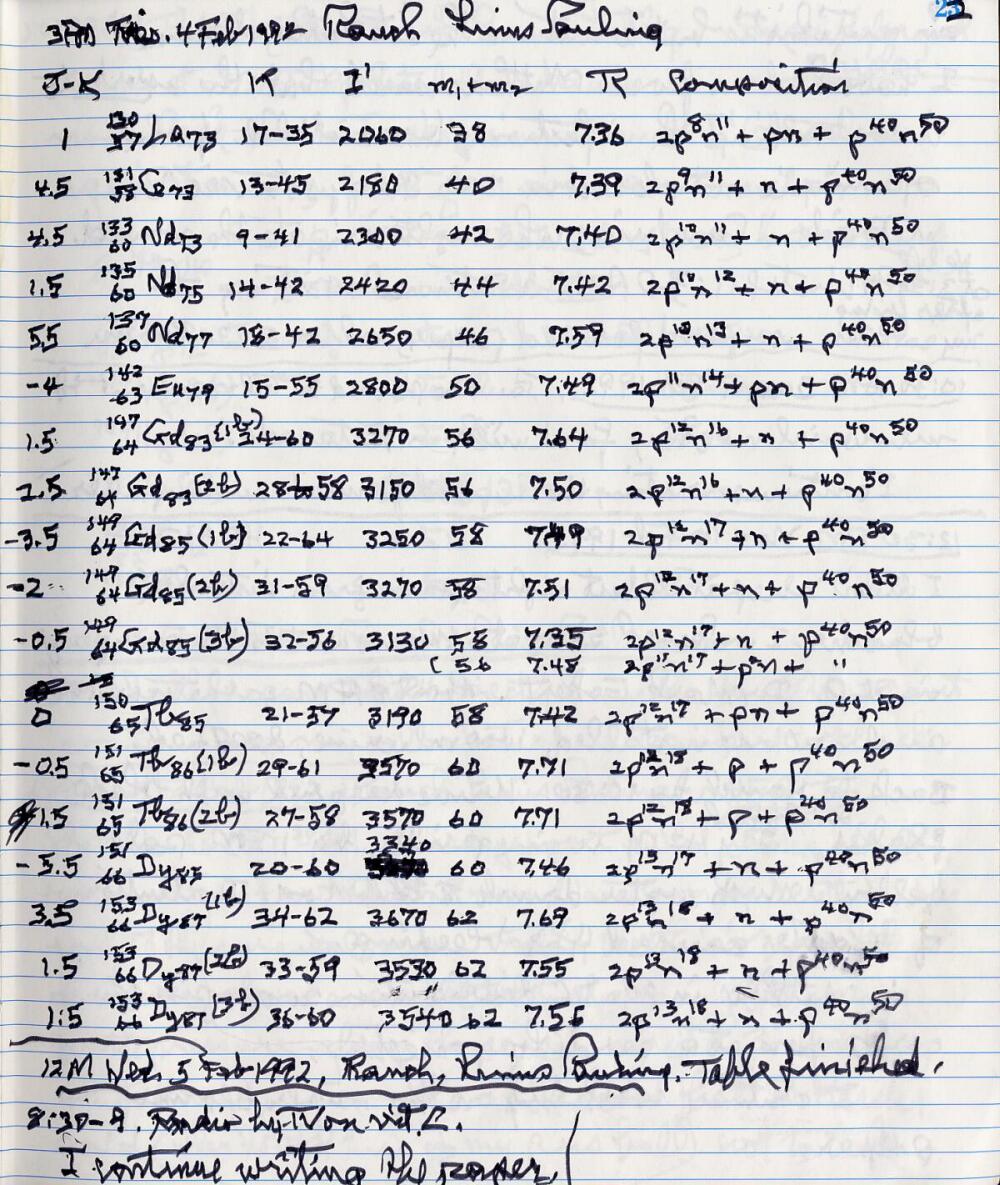 3PM Tues. 4 Feb 1992 Ranch Linus Pauling
J-K K I' m₁+m₂ R Composition
1 ¹³⁰₅₇La₇₃ 17-35 2060 38 7.36 2p⁸n¹¹ + pn + p⁴⁰n⁵⁰
4.5 ¹³¹₅₈Ce₇₃ 13-45 2180 40 7.39 2p⁹n¹¹ + n + p⁴⁰n⁵⁰
4.5 ¹³³₆₀Nd₇₃ 9-41 2300 42 7.40 2p¹⁰n¹¹ + n + p⁴⁰n⁵⁰
1.5 ¹³⁵₆₀Nd₇₅ 14-42 2420 44 7.42 2p¹⁰n¹² + n + p⁴⁰n⁵⁰
5.5 ¹³⁷₆₀Nd₇₇ 18-42 2650 46 7.59 2p¹⁰n¹³ + n + p⁴⁰n⁵⁰
-4 ¹⁴²₆₃Eu₇₉ 15-55 2800 50 7.49 2p¹¹n¹⁴ + pn + p⁴⁰n⁵⁰
1.5 ¹⁴⁷₆₄Gd₈₃(1b) 24-60 3270 56 7.64 2p¹²n¹⁶ + n + p⁴⁰n⁵⁰
2.5 ¹⁴⁷₆₄Gd₈₃(2b) 28-58 3150 56 7.50 2p¹²n¹⁶ + n + p⁴⁰n⁵⁰
-3.5 ¹⁴⁹₆₄Gd₈₅(1b) 22-64 3250 58 7.49 2p¹²n¹⁷ + n + p⁴⁰n⁵⁰
-2 ¹⁴⁹₆₄Gd₈₅(2b) 31-59 3270 58 7.51 2p¹²n¹⁷ + n + p⁴⁰n⁵⁰
-0.5 ¹⁴⁹₆₄Gd₈₅(3b) 32-56 3130 58 7.35 2p¹²n¹⁷ + n + p⁴⁰n⁵⁰
( 56 7.48 2p¹¹n¹⁷ + p²n + "
0 ¹⁵⁰₆₅Tb₈₅ 21-57 3190 58 7.42 2p¹²n¹⁷ + pn + p⁴⁰n⁵⁰
-0.5 ¹⁵¹₆₅Tb₈₆(1b) 29-61 3570 60 7.71 2p¹²n¹⁸ + p + p⁴⁰n⁵⁰
1.5 ¹⁵¹₆₅Tb₈₆(2b) 27-58 3570 60 7.71 2p¹²n¹⁸ + p + p⁴⁰n⁵⁰
-5.5 ¹⁵¹₆₆Dy₈₅ 20-60 3340 60 7.46 2p¹³n¹⁷ + n + p⁴⁰n⁵⁰
3.5 ¹⁵³₆₆Dy₈₇(1b) 34-62 3670 62 7.69 2p¹³n¹⁸ + n + p⁴⁰n⁵⁰
1.5 ¹⁵³₆₆Dy₈₇(2b) 33-59 3530 62 7.55 2p¹³n¹⁸ + n + p⁴⁰n⁵⁰
1.5 ¹⁵³₆₆Dy₈₇(3b) 36-60 3540 62 7.56 2p¹³n¹⁸ + n + p⁴⁰n⁵⁰
12M Wed. 5 Feb 1992, Ranch, Linus Pauling. Table finished.
8:30-9. Radio by on vit. C.
I continue writing the paper.